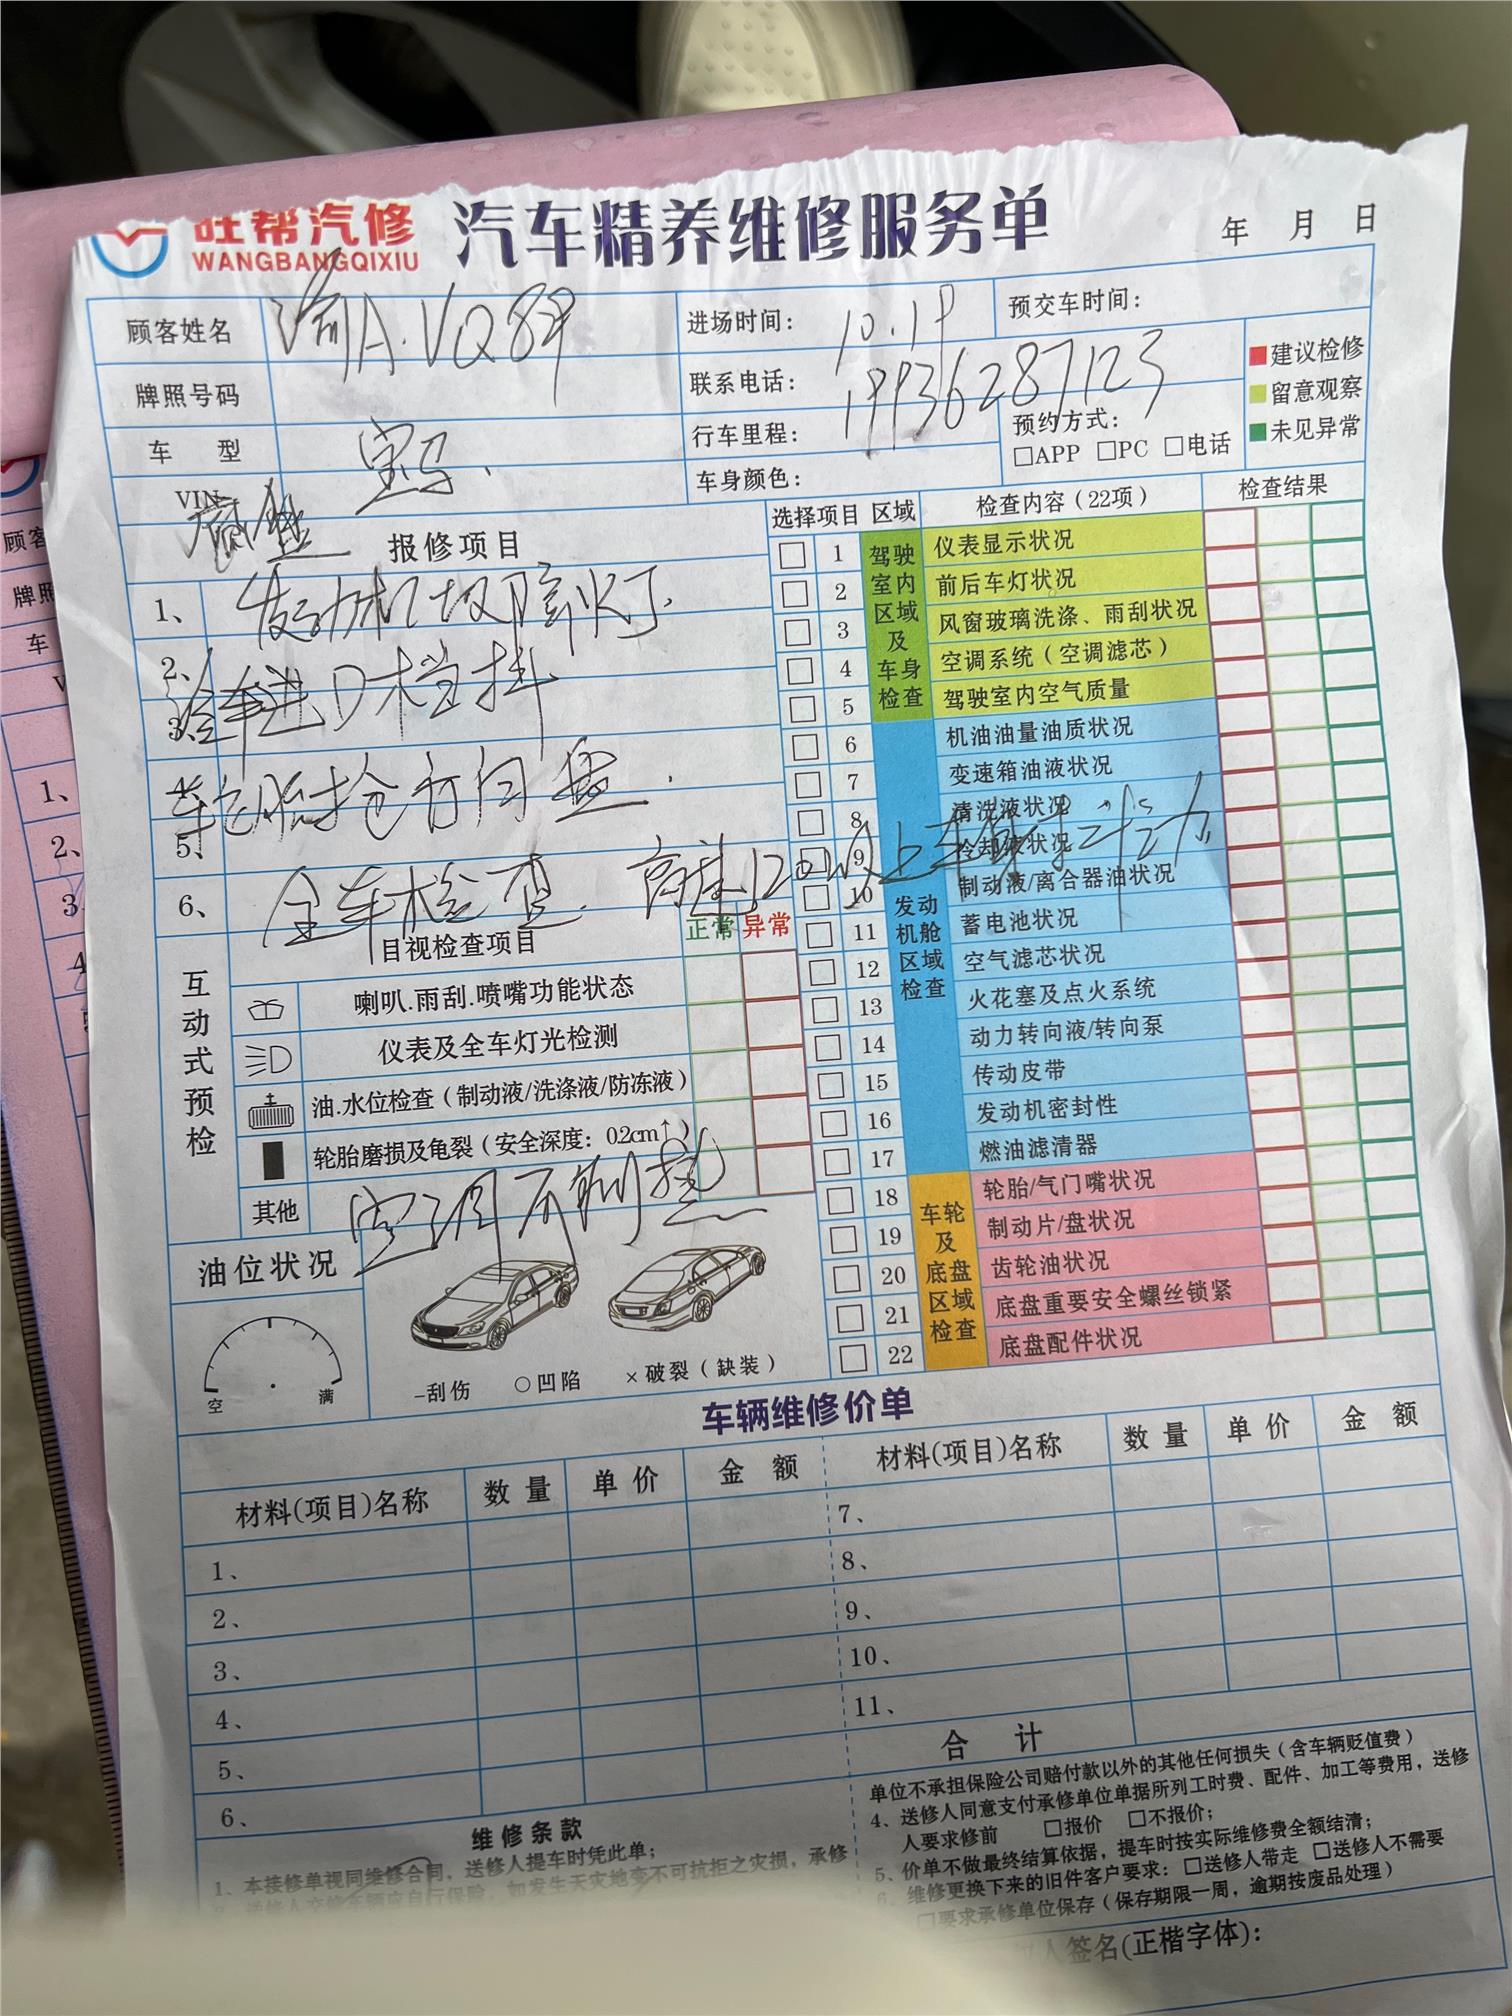 旺帮汽修
WANGBANGQIXIU
汽车精养维修服务单
年 月 日
顾客姓名
渝A.VQ89
进场时间： 10.19
预交车时间：
牌照号码
联系电话： 19936287123
车 型 宝马.
行车里程：
预约方式：
□APP □PC □电话
VIN
车身颜色：
■建议检修
■留意观察
■未见异常
报修项目
1、 发动机故障灯.
2、
3、 冷车进D档抖
4、
5、 车轮胎抢方向盘.
6、 全车检查. 高速120以上车身抖动.
选择项目 区域 检查内容（22项） 检查结果
驾驶室内区域及车身检查
1 仪表显示状况
2 前后车灯状况
3 风窗玻璃洗涤、雨刮状况
4 空调系统（空调滤芯）
5 驾驶室内空气质量
发动机舱区域检查
6 机油油量油质状况
7 变速箱油液状况
8 清洗液状况
9 冷却液状况
10 制动液/离合器油状况
11 蓄电池状况
12 空气滤芯状况
13 火花塞及点火系统
14 动力转向液/转向泵
15 传动皮带
16 发动机密封性
17 燃油滤清器
车轮及底盘区域检查
18 轮胎/气门嘴状况
19 制动片/盘状况
20 齿轮油状况
21 底盘重要安全螺丝锁紧
22 底盘配件状况
互动式预检
目视检查项目 正常 异常
喇叭.雨刮.喷嘴功能状态
仪表及全车灯光检测
油.水位检查（制动液/洗涤液/防冻液）
轮胎磨损及龟裂（安全深度：0.2cm↑）
其他 空调不制热
油位状况
空 满
-刮伤 ○凹陷 ×破裂（缺装）
车辆维修价单
材料(项目)名称 数量 单价 金额 材料(项目)名称 数量 单价 金额
1、 7、
2、 8、
3、 9、
4、 10、
5、 11、
6、 合 计
维修条款
1、本接修单视同维修合同，送修人提车时凭此单；
单位不承担保险公司赔付款以外的其他任何损失（含车辆贬值费）
4、送修人同意支付承修单位单据所列工时费、配件、加工等费用，送修
人要求修前 □报价 □不报价；
5、价单不做最终结算依据，提车时按实际维修费全额结清；
6、维修更换下来的旧件客户要求：□送修人带走 □送修人不需要
□要求承修单位保存（保存期限一周，逾期按废品处理）
人签名(正楷字体)：